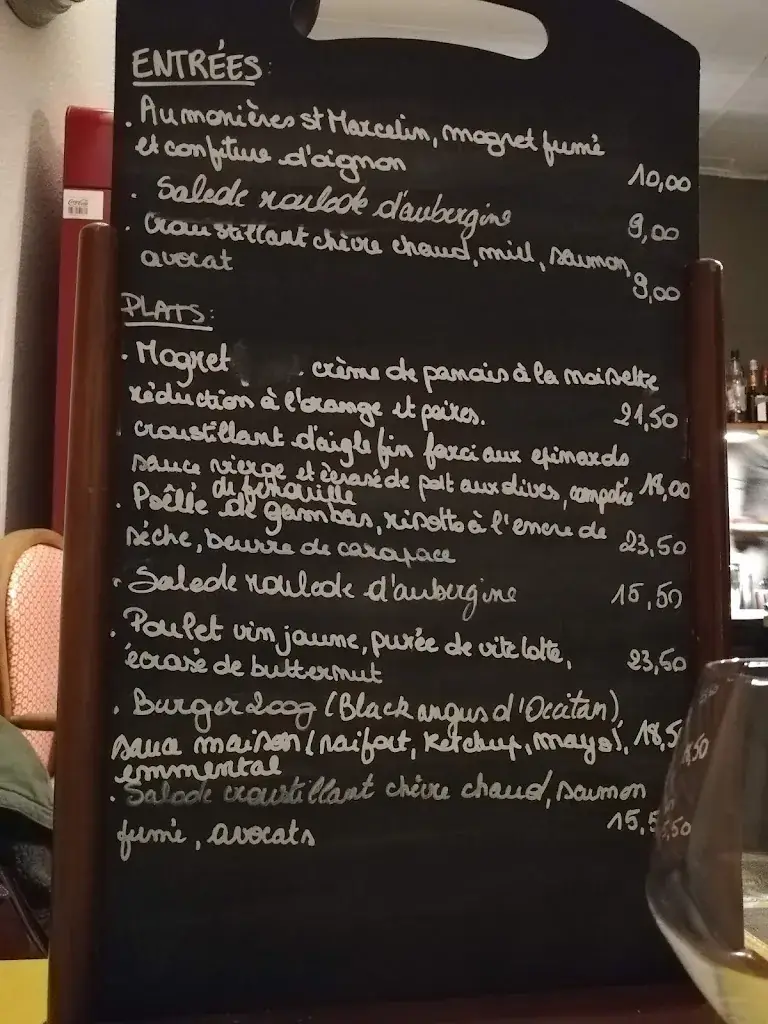 ENTRÉES:
. Aumonières st Marcelin, magret fumé
et confiture d'oignon 10,00
. Salade roulade d'aubergine 9,00
. Croustillant chèvre chaud, miel, saumon,
avocat 9,00
PLATS:
. Magret . crème de panais à la noisette
réduction à l'orange et poires. 21,50
. croustillant d'aiglefin farci aux épinards
sauce vierge et écrasé de pdt aux olives, compotée 18,00
de fenouille
. Poêlée de gambas, risotto à l'encre de
sèche, beurre de carapace 23,50
. Salade roulade d'aubergine 15,50
. Poulet vin jaune, purée de vitelotte,
écrasé de butternut 23,50
. Burger 200g (Black angus d'Occitan),
sauce maison (raifort, ketchup, mayo), 18,5
emmental
. Salade croustillant chèvre chaud, saumon
fumé, avocats 15,5